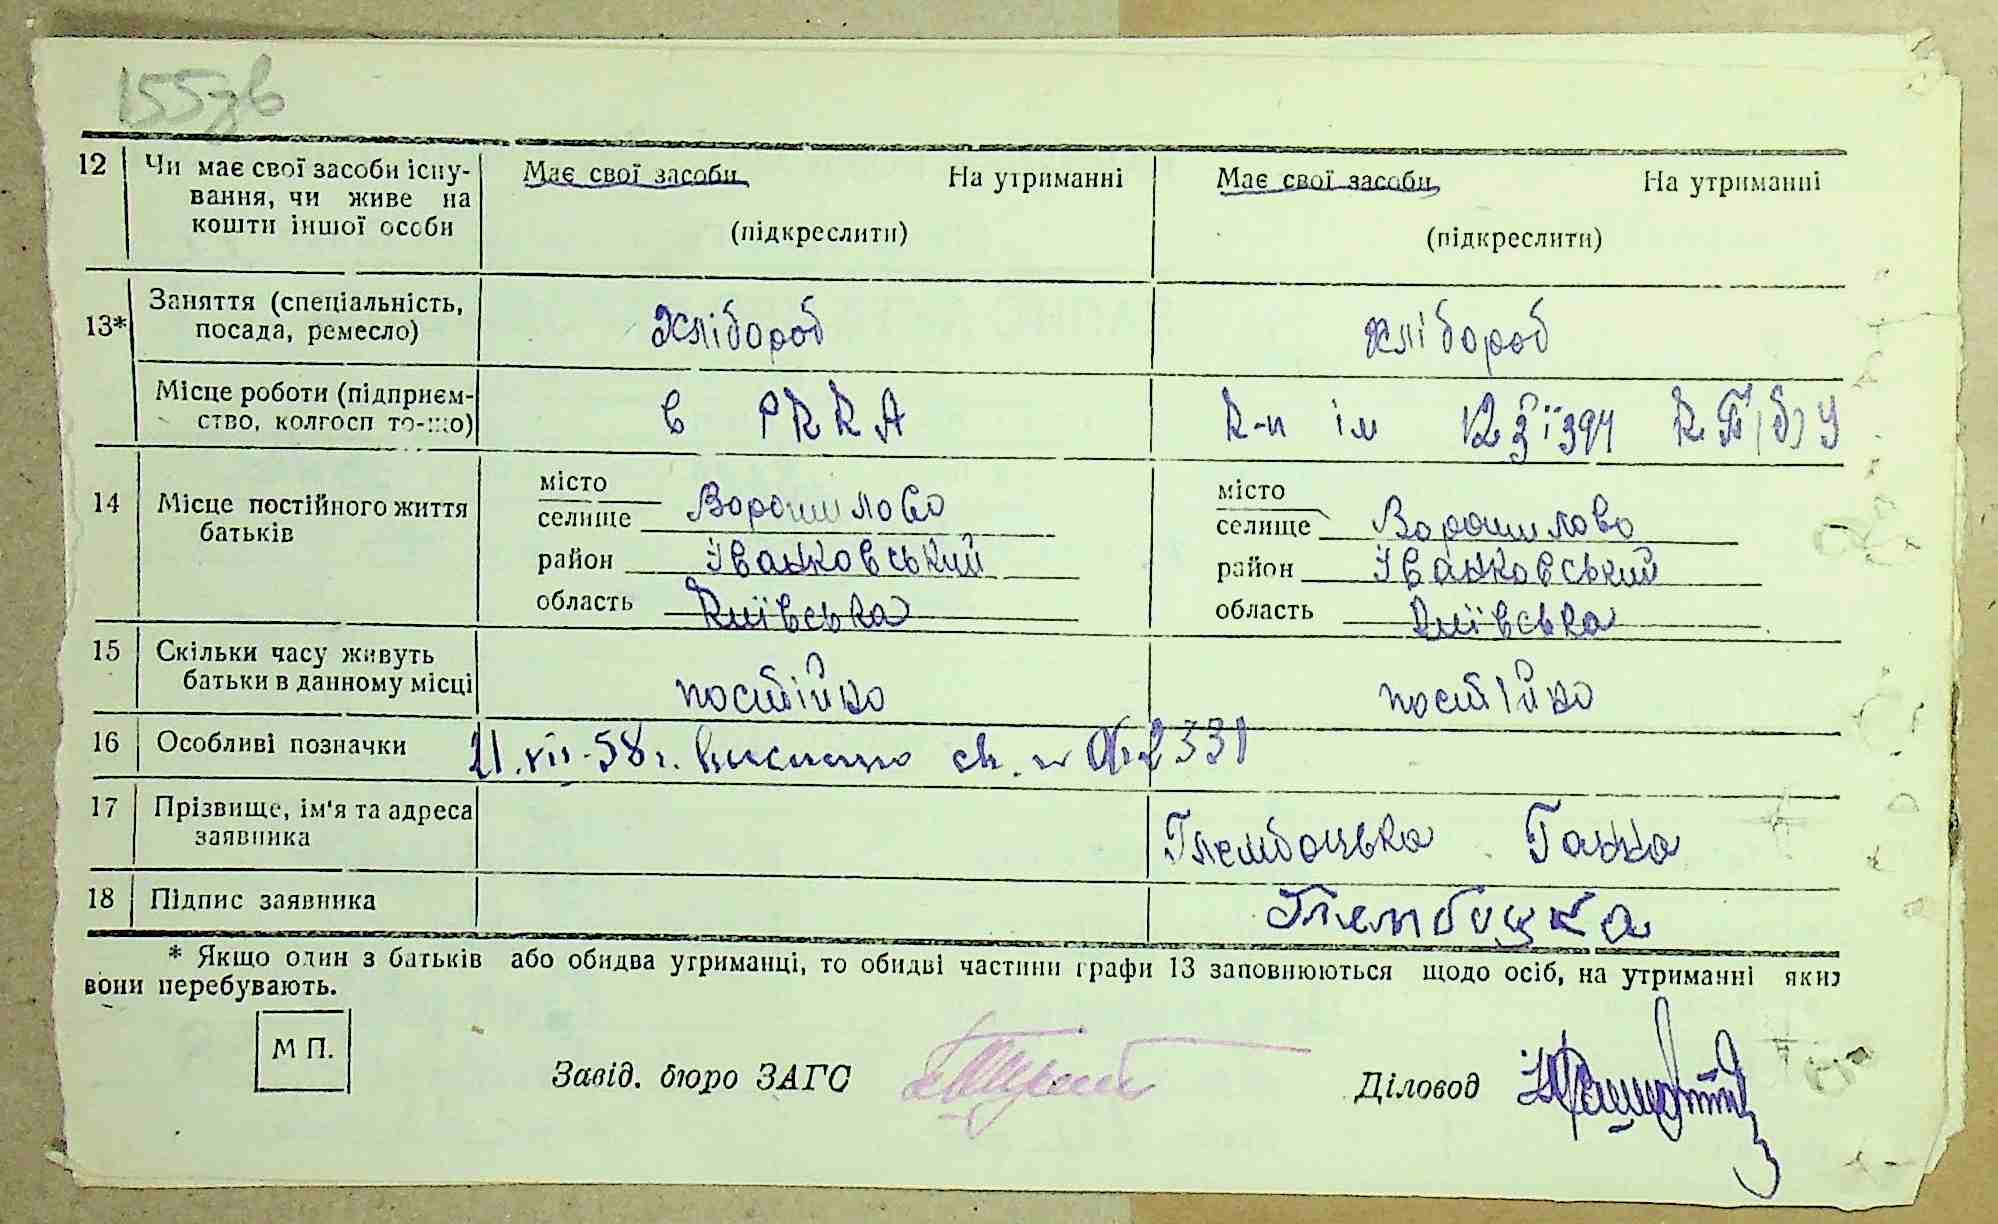 155зв
12 Чи має свої засоби існу-
вання, чи живе на
кошти іншої особи
Має свої засоби На утриманні
(підкреслити)
Має свої засоби На утриманні
(підкреслити)
13* Заняття (спеціальність,
посада, ремесло)
хлібороб
хлібороб
Місце роботи (підприєм-
ство, колгосп то-що)
в РККА
К-п ім 12 з'їзду КП(б)У
14 Місце постійного життя
батьків
місто
селище Ворошилово
район Іванковський
область Київська
місто
селище Ворошилово
район Іванковський
область Київська
15 Скільки часу живуть
батьки в данному місці
постійно
постійно
16 Особливі позначки
21.VII-58 г. 2331
17 Прізвище, ім'я та адреса
заявника
Глембоцька Ганна
18 Підпис заявника
Глембоцка
* Якщо один з батьків або обидва утриманці, то обидві частини графи 13 заповнюються щодо осіб, на утриманні яких
вони перебувають.
М П.
Завід. бюро ЗАГС
Діловод